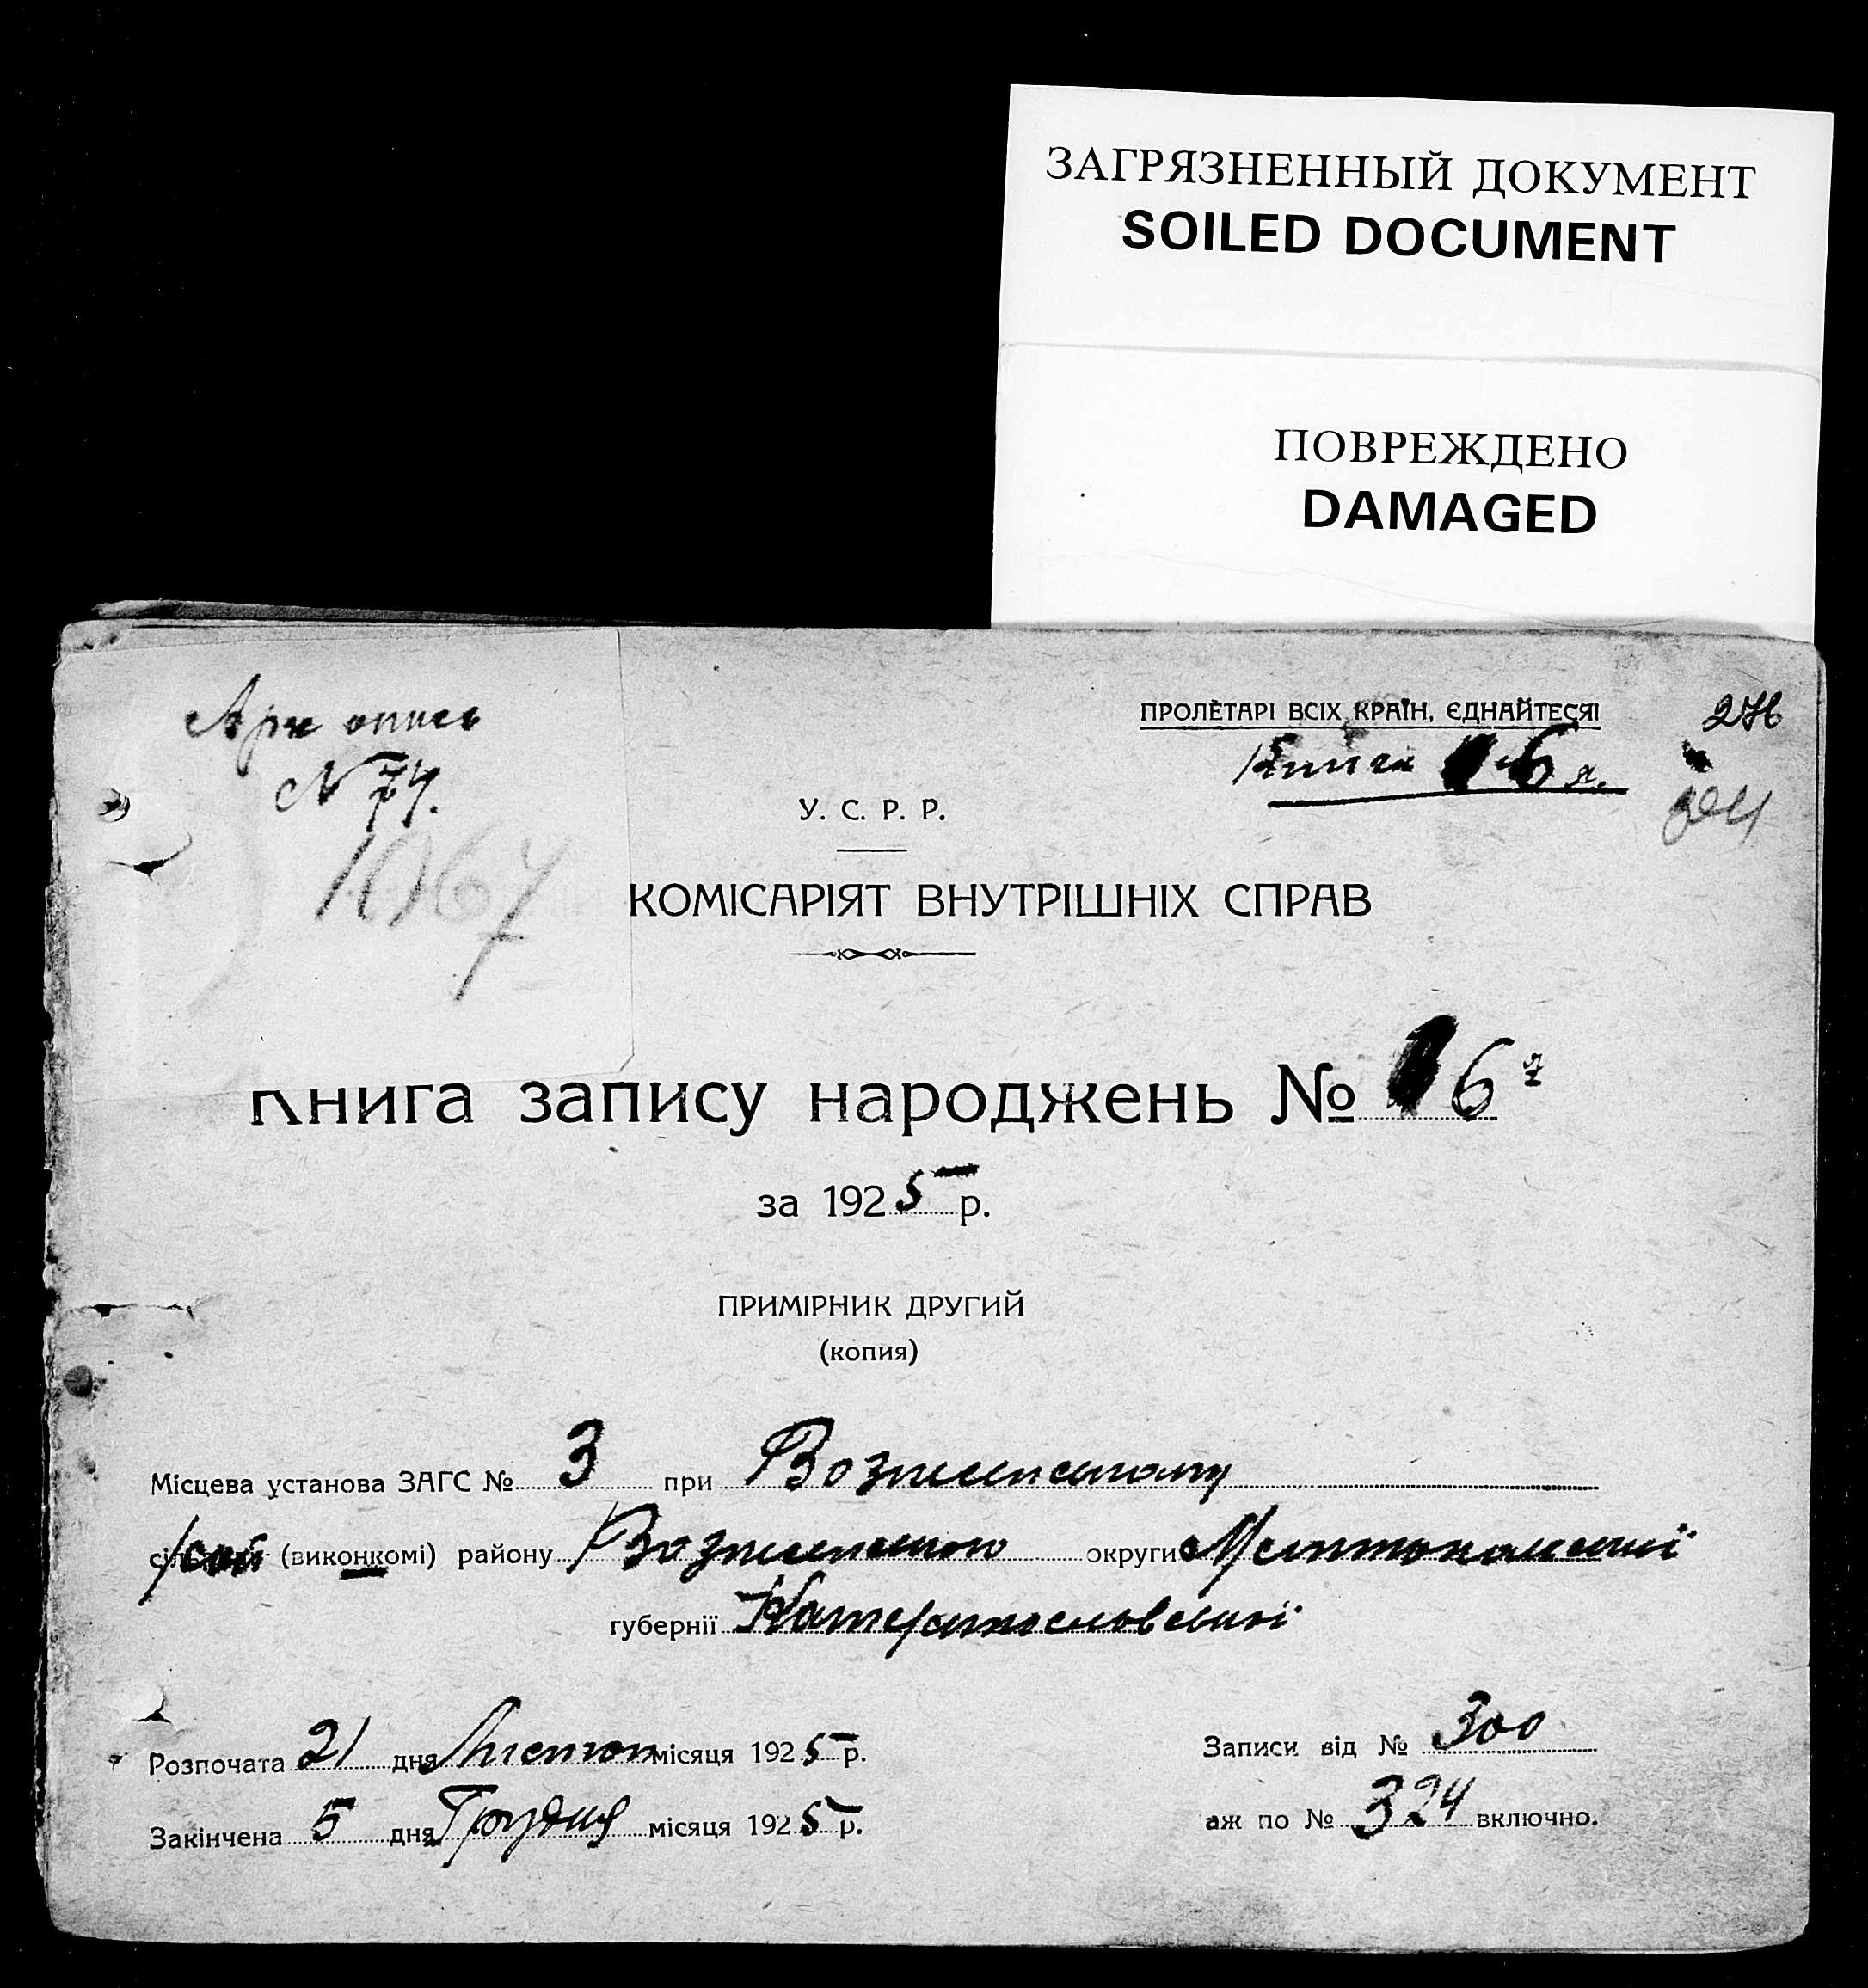 ЗАГРЯЗНЕННЫЙ ДОКУМЕНТ
SOILED DOCUMENT
ПОВРЕЖДЕНО
DAMAGED
Арх опись
N 74.
1067
ПРОЛЕТАРІ ВСІХ КРАЇН, ЄДНАЙТЕСЯ!
276
Книга 6 я.
У. С. Р. Р.
КОМІСАРІЯТ ВНУТРІШНІХ СПРАВ
Книга запису народжень № 6 я
за 1925 р.
ПРИМІРНИК ДРУГИЙ
(копия)
Місцева установа ЗАГС № 3 при Вознесенському
(виконкомі) району Вознесенського округи Мелитопольської
губернії Катеринославської
Розпочата 21 дня Листоп місяця 1925 р.
Закінчена 5 дня Грудня місяця 1925 р.
Записи від № 300
аж по № 324 включно.